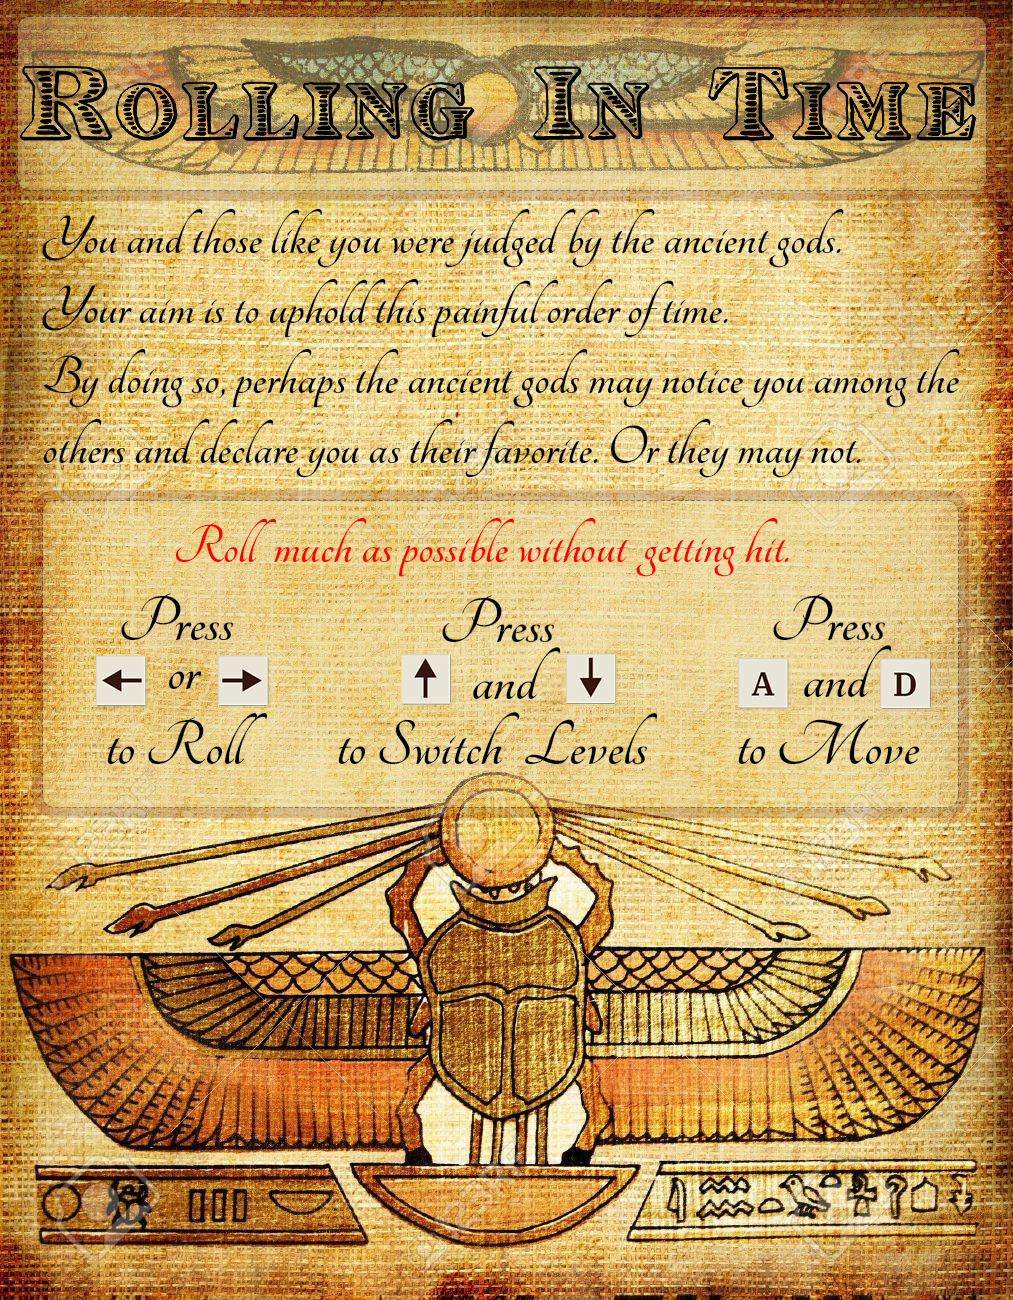 Rolling In Time
You and those like you were judged by the ancient gods.
Your aim is to uphold this painful order of time.
By doing so, perhaps the ancient gods may notice you among the
others and declare you as their favorite. Or they may not.
Roll much as possible without getting hit.
Press Press Press
← or → ↑ and ↓ A and D
to Roll to Switch Levels to Move